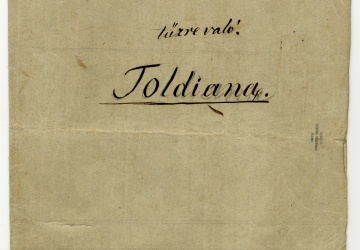 tűzre való!
Toldiana.